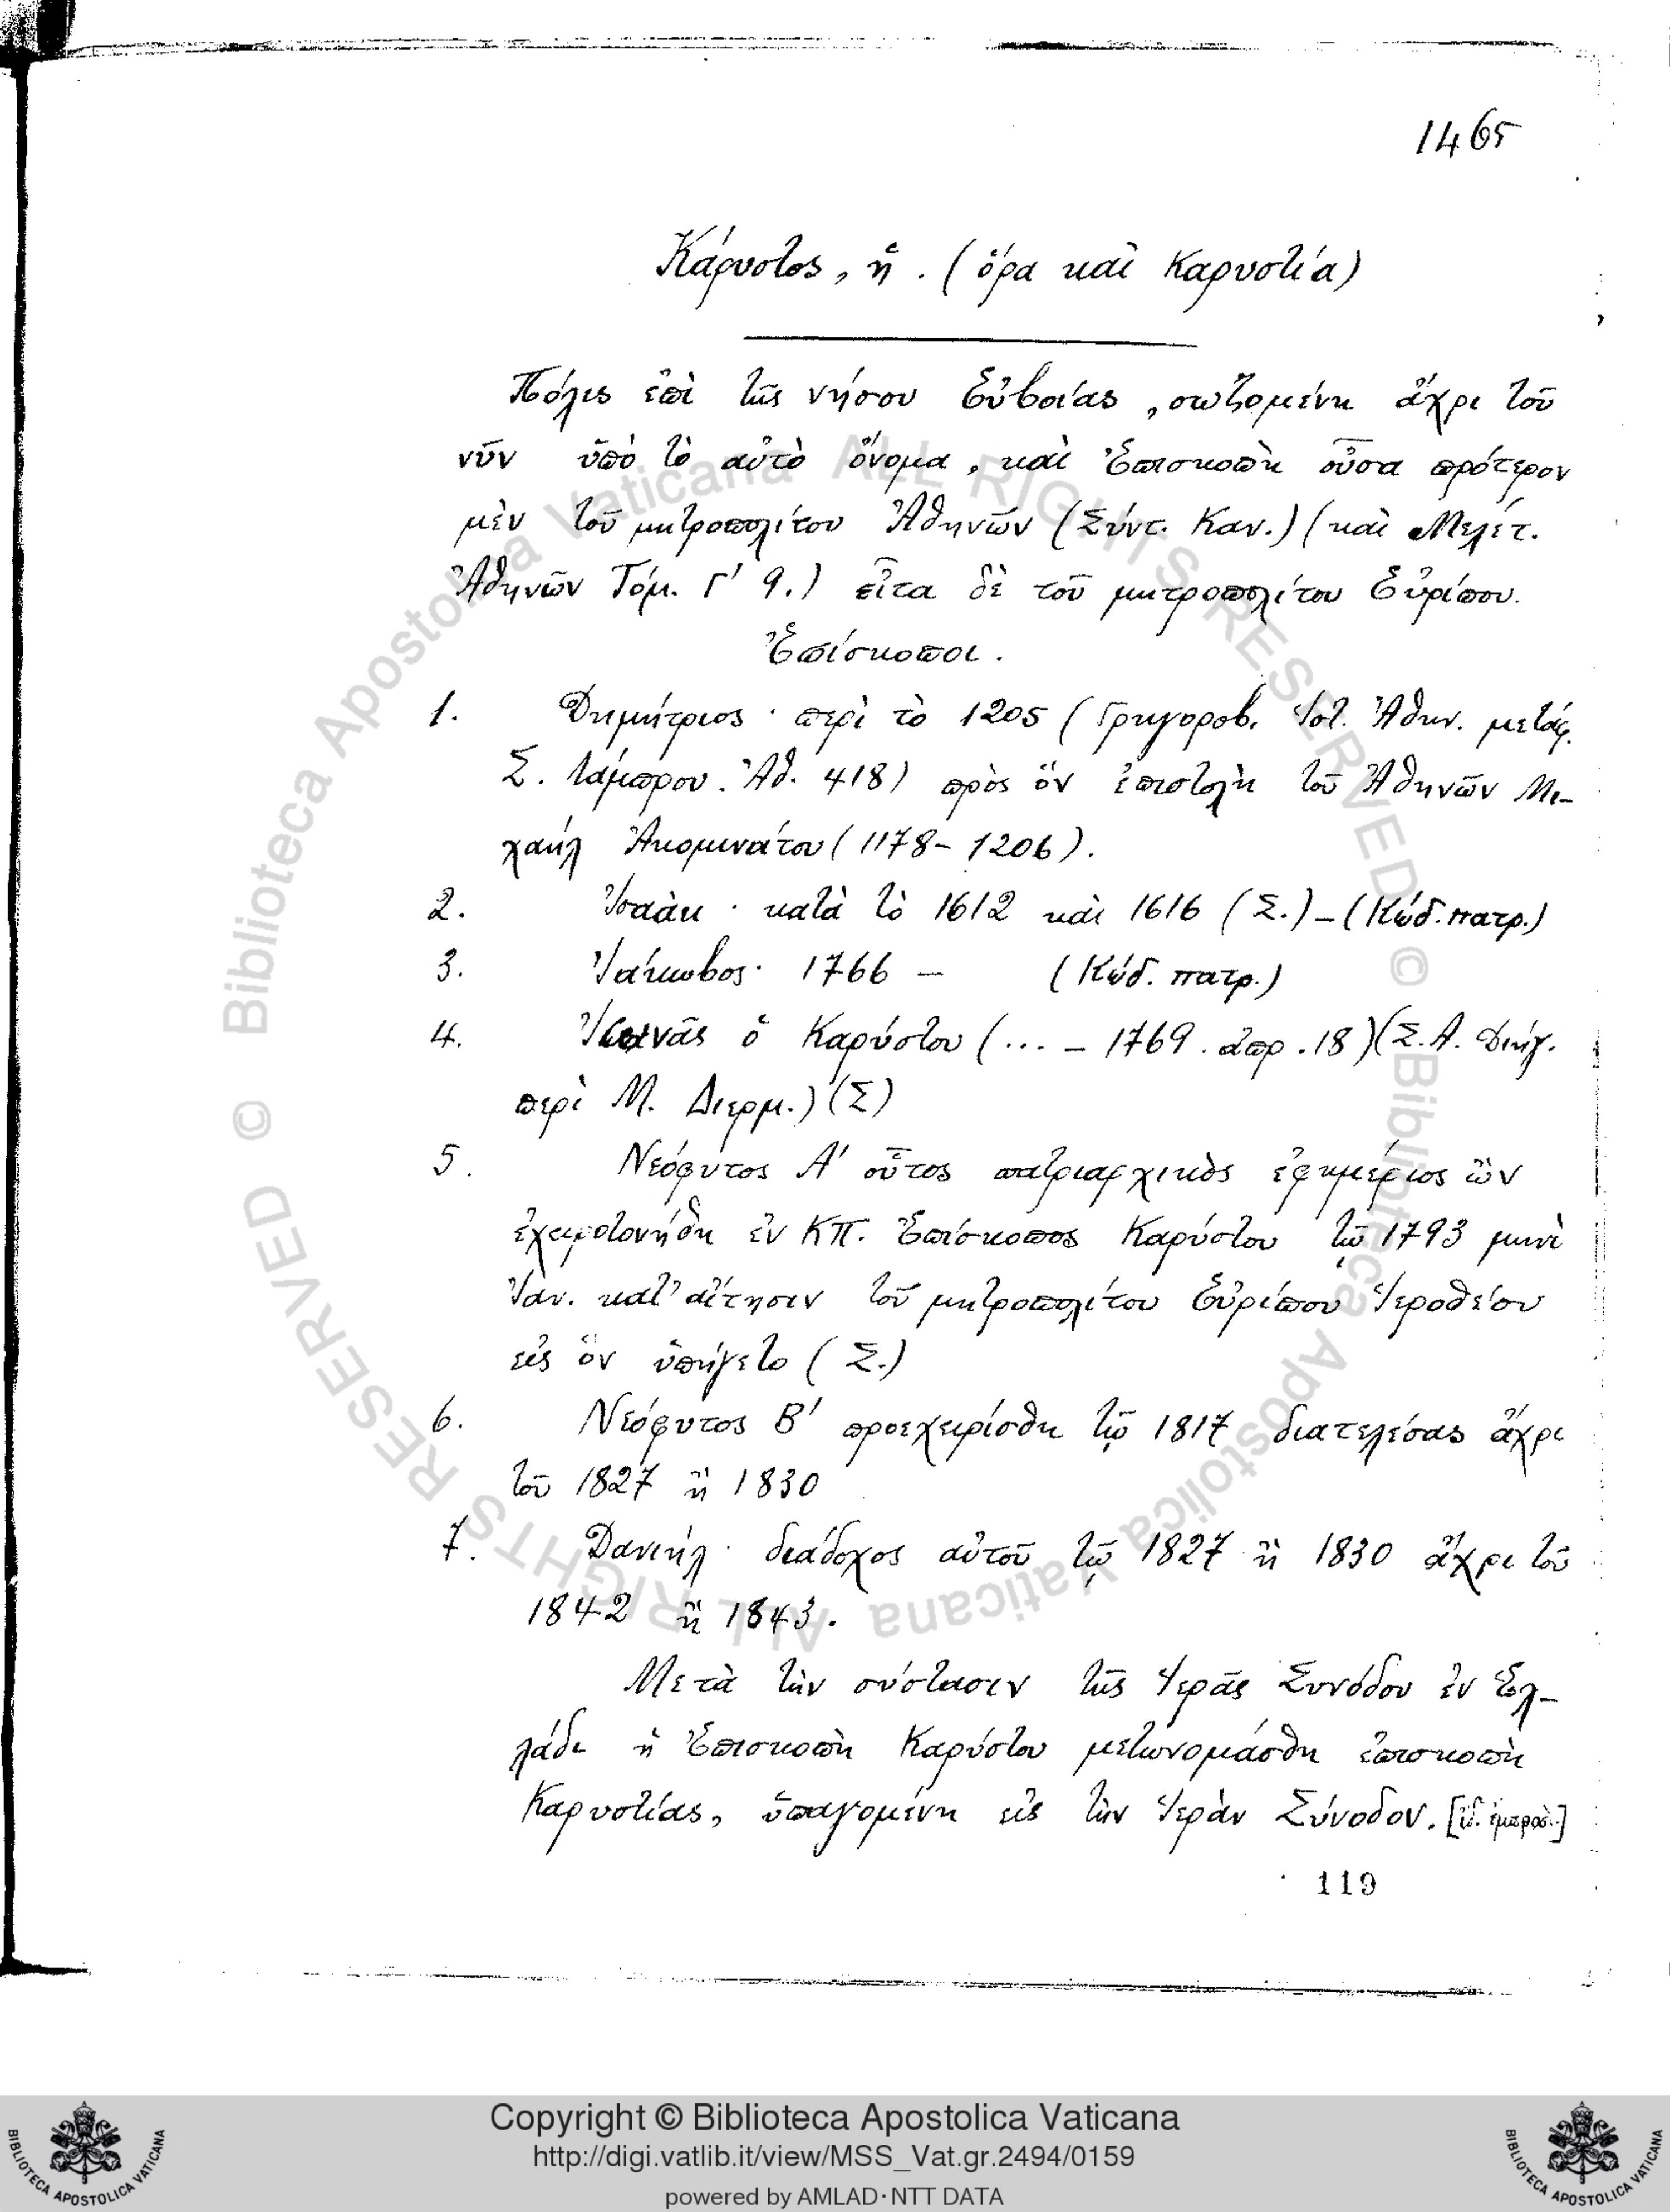 1465
Κάρυστος, ἡ. (ὅρα καὶ Καρυστία)
Πόλις ἐπὶ τῆς νήσου Εὐβοίας, σωζομένη ἄχρι τοῦ
νῦν ὑπὸ τὸ αὐτὸ ὄνομα, καὶ Ἐπισκοπὴ οὖσα πρότερον
μὲν τοῦ μητροπολίτου Ἀθηνῶν (Σύντ. Καν.) (καὶ Μελέτ.
Ἀθηνῶν Τόμ. Γ' 9.) εἶτα δὲ τοῦ μητροπολίτου Εὐρίπου.
Ἐπίσκοποι.
1. Δημήτριος · περὶ τὸ 1205 (Γρηγοροβ. Ἱστ. Ἀθην. μετάφ.
Σ. Λάμπρου. Ἀθ. 418) πρὸς ὃν ἐπιστολὴ τοῦ Ἀθηνῶν Μι-
χαὴλ Ἀκομινάτου (1178-1206).
2. Ἰσαὰκ · κατὰ τὸ 1612 καὶ 1616 (Σ.) - (Κώδ. πατρ.)
3. Ἰάκωβος · 1766 - (Κώδ. πατρ.)
4. Ἰωαννᾶς ὁ Καρύστου (... - 1769. ἀπρ. 18) (Σ. Α. Διήγ.
περὶ Μ. Διερμ.) (Σ)
5. Νεόφυτος Α' οὗτος πατριαρχικὸς ἐφημέριος ὢν
ἐχειροτονήθη ἐν ΚΠ. Ἐπίσκοπος Καρύστου τῷ 1793 μηνὶ
Ἰαν. κατ' αἴτησιν τοῦ μητροπολίτου Εὐρίπου Ἱεροθέου
εἰς ὃν ὑπήγετο (Σ.)
6. Νεόφυτος Β' προεχειρίσθη τῷ 1817 διατελέσας ἄχρι
τοῦ 1827 ἢ 1830
7. Δανιήλ · διάδοχος αὐτοῦ τῷ 1827 ἢ 1830 ἄχρι τοῦ
1842 ἢ 1843.
Μετὰ τὴν σύστασιν τῆς Ἱερᾶς Συνόδου ἐν Ἑλ-
λάδι ἡ Ἐπισκοπὴ Καρύστου μετωνομάσθη ἐπισκοπὴ
Καρυστίας, ὑπαγομένη εἰς τὴν Ἱερὰν Σύνοδον. [ἰδ. ἐμπροσ.]
119
© Biblioteca Apostolica Vaticana ALL RIGHTS RESERVED © Biblioteca Apostolica Vaticana ALL RIGHTS RESERVED
Copyright © Biblioteca Apostolica Vaticana
http://digi.vatlib.it/view/MSS_Vat.gr.2494/0159
powered by AMLAD·NTT DATA
BIBLIOTECA APOSTOLICA VATICANA
BIBLIOTECA APOSTOLICA VATICANA